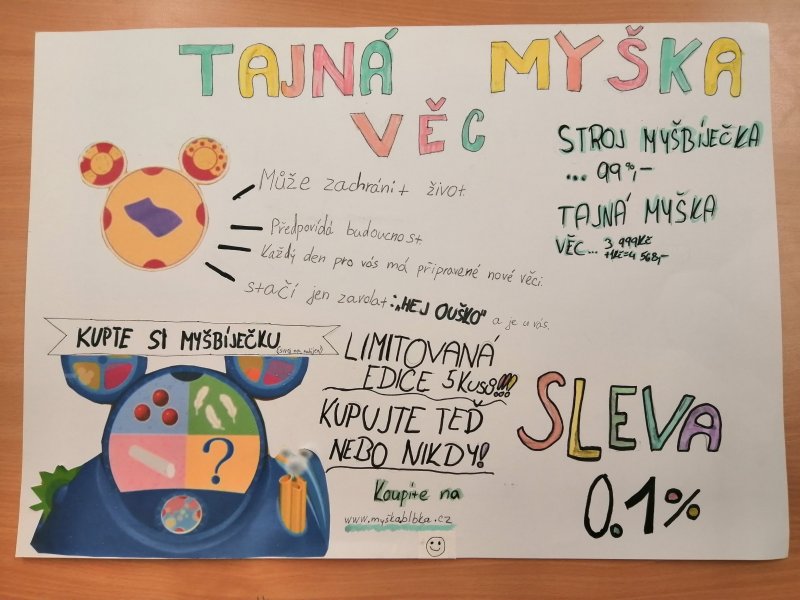 TAJNÁ MYŠKA
VĚC
STROJ MYŠBÍJEČKA
... 99%,-
TAJNÁ MYŠKA
VĚC... 3 999Kč
+1Kč=4 568,-
Může zachránit život.
Předpovídá budoucnost
Každý den pro vás má připravené nové věci.
stačí jen zavolat: „HEJ OUŠKO" a je u vás.
KUPTE SI MYŠBÍJEČKU
LIMITOVANÁ
EDICE 5 KUSŮ!!!
KUPUJTE TEĎ
NEBO NIKDY!
Koupíte na
www.myskablbka.cz
SLEVA
0.1%
?